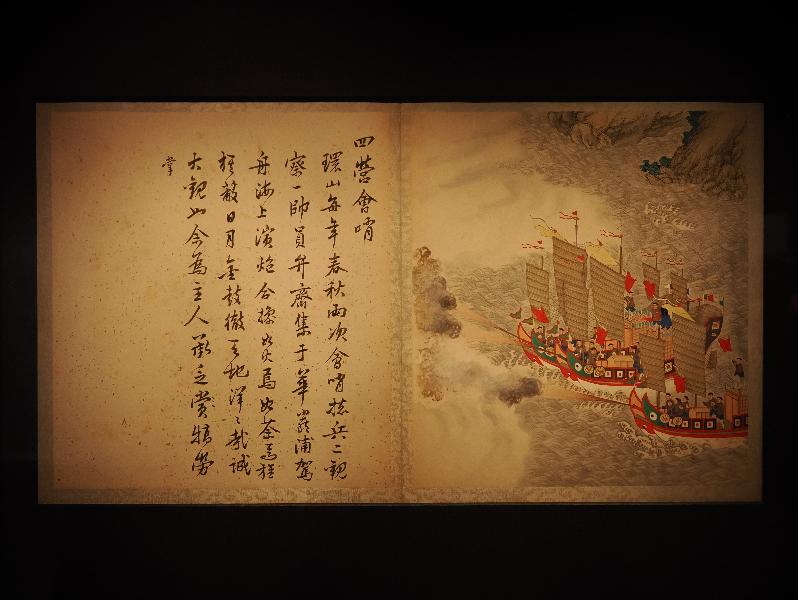 四營會哨
環山每年春秋兩次會哨摠兵二觀
察一帥員弁齊集于華嚴浦駕
舟海上演炮合操如火焉如荼焉旌
旄蔽日月金鼓徹天地洋洋哉誠
大觀也今為主人承乏賞犒勞
掌